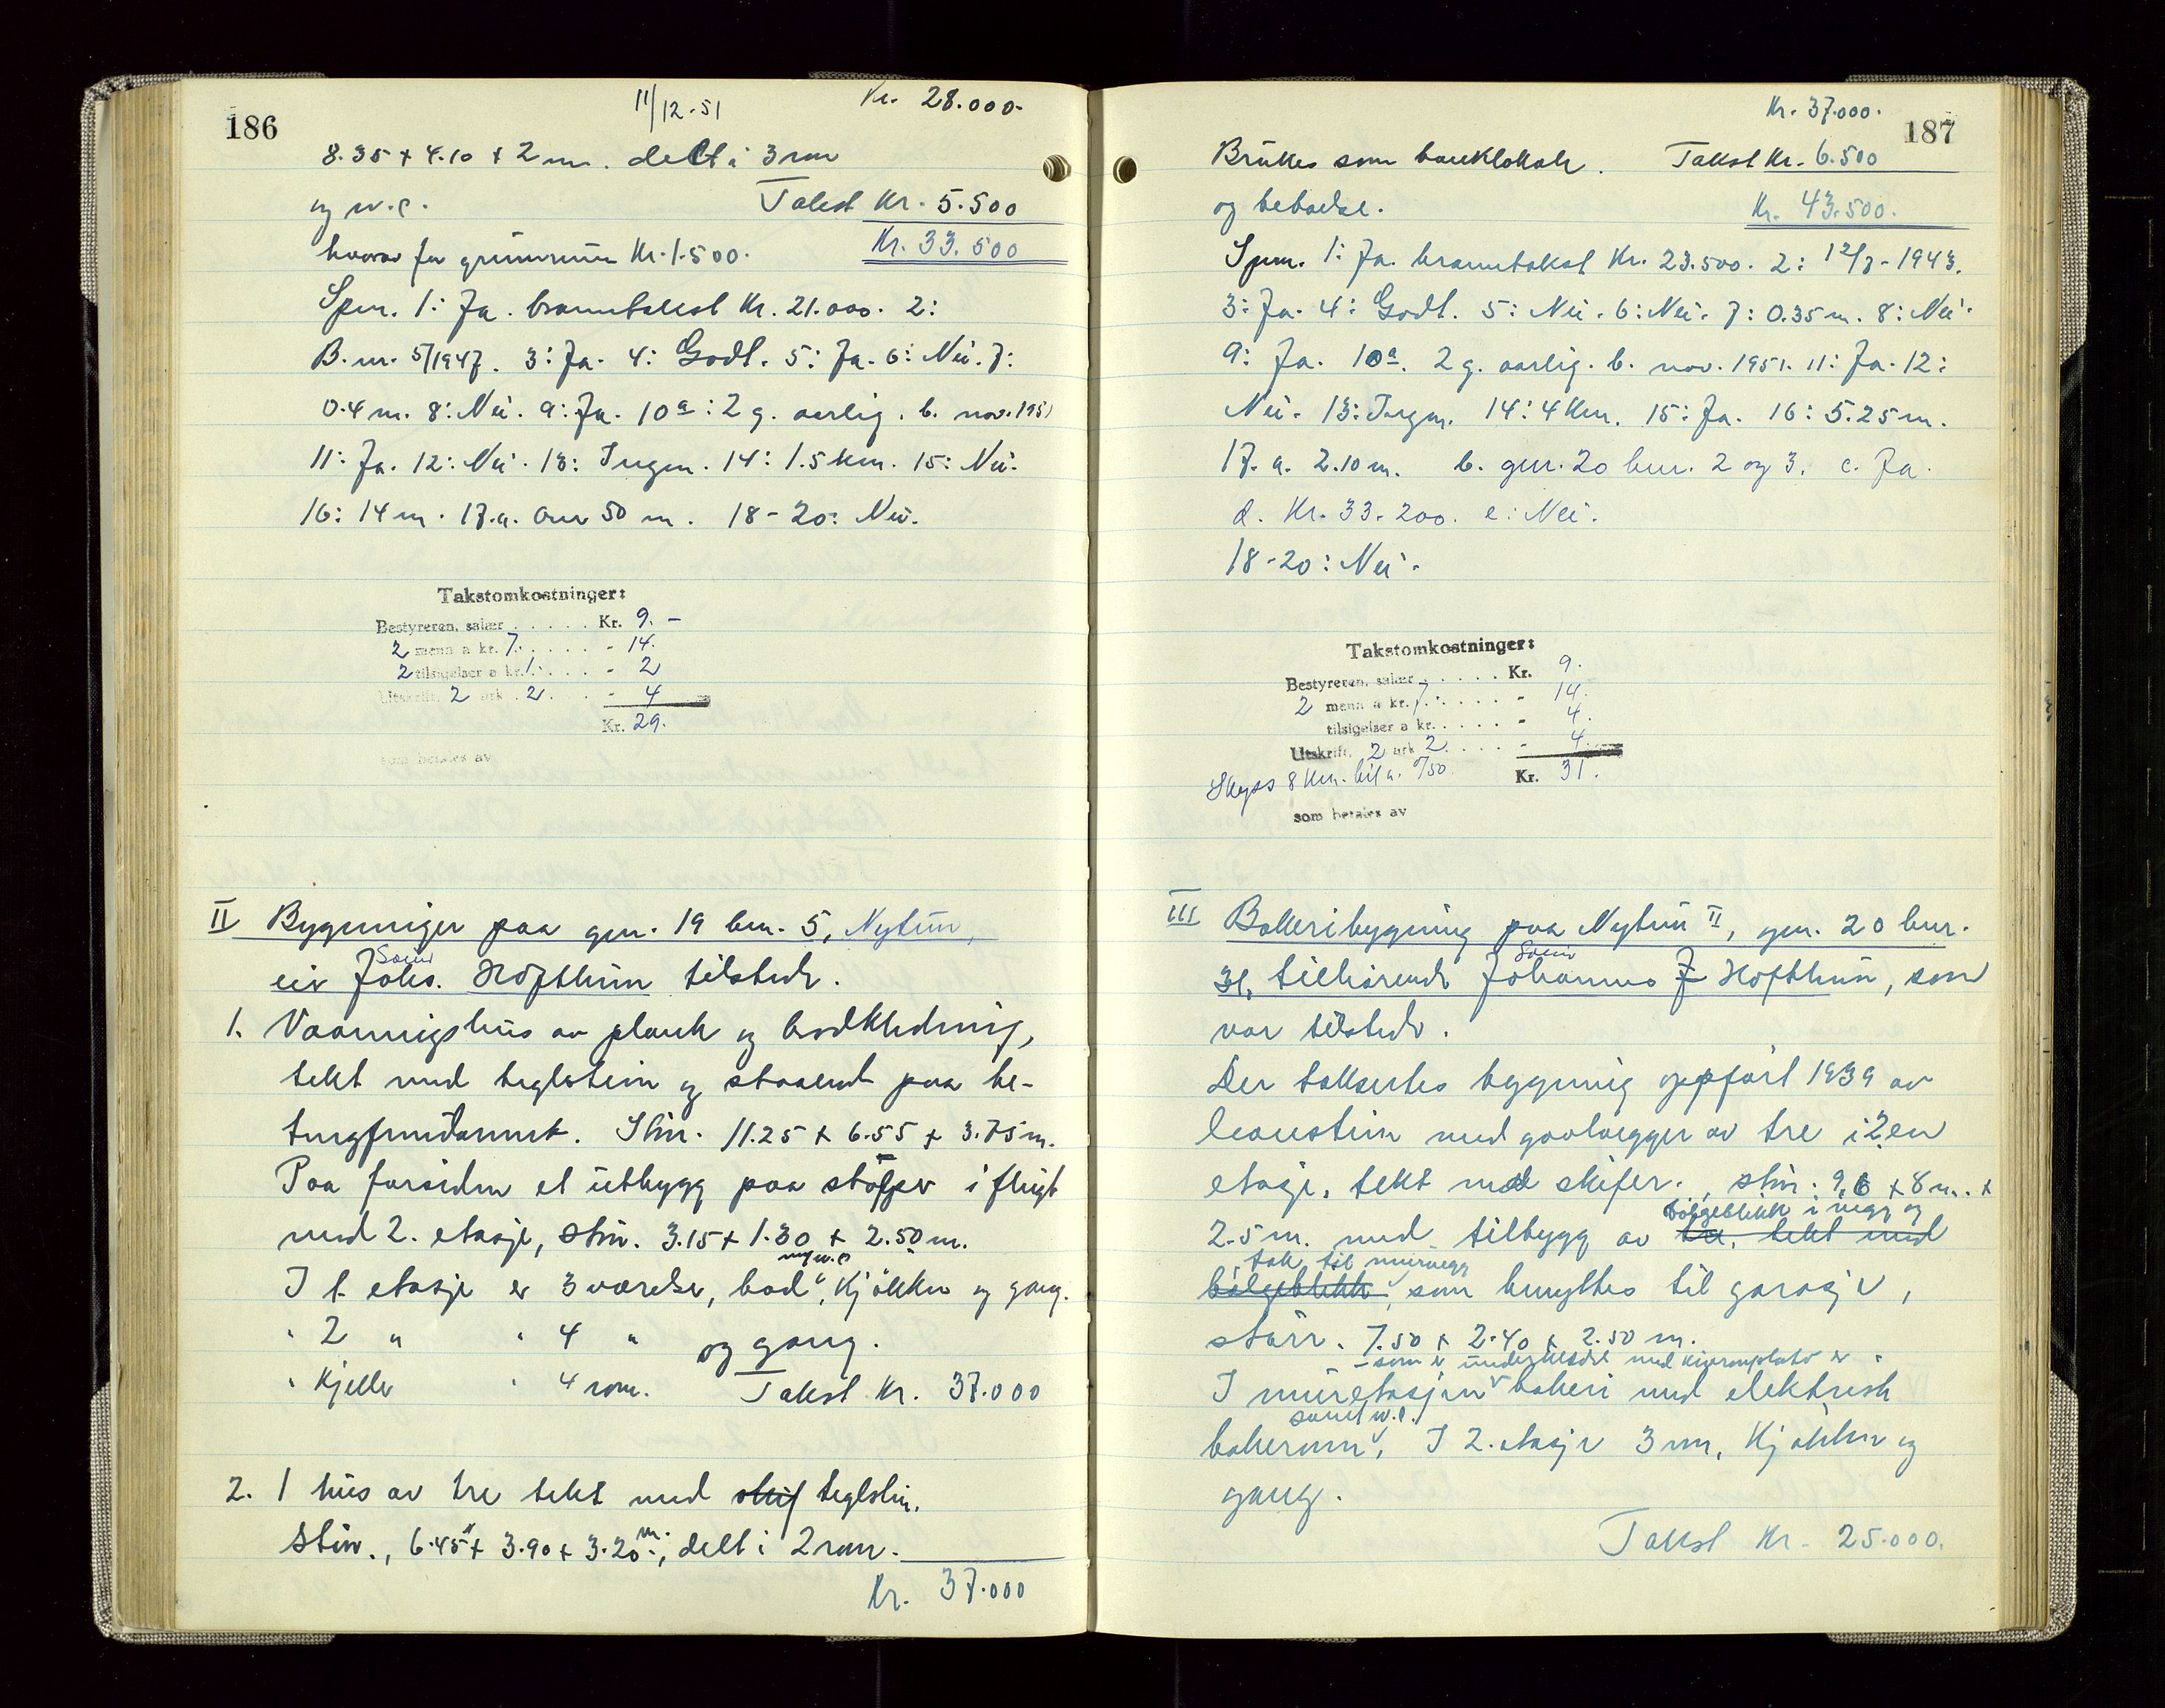 186
11/12-51
Kr. 28.000-
8.35 + 4.10 + 2 m. delt i 3 rom
og w.c.
Takst Kr. 5.500
hvorav for grunnmur Kr. 1.500.
Kr. 33.500
Spm. 1: Ja. branntakst Kr. 21.000. 2:
B. nr. 5/1947. 3: Ja. 4: Godt. 5: Ja. 6: Nei. 7:
0.4 m. 8: Nei. 9: Ja. 10a: 2 g. aarlig. b. nov. 1951
11: Ja. 12: Nei. 13: Ingen. 14: 1.5 km. 15: Nei.
16: 14 m. 17.a. Over 50 m. 18-20: Nei.
Takstomkostninger:
Bestyreren, salær . . . . . Kr. 9. -
2 menn a kr. 7. . . . . . - 14.
2 tilsigelser a kr. 1. . . . . - 2
Utskrift. 2 ark . 2. . . . - 4
Kr. 29.
som betales av
II Bygninger paa gnr. 19 bnr. 5, Nytun,
eier Johs. Hofthun tilstede.
1. Vaaningshus av plank og bordkledning,
tekt med teglstein og staaende paa be-
tongfundament. Stør. 11.25 + 6.55 + 3.75 m.
Paa forsiden et utbygg paa stolper i flugt
med 2. etasje, stør. 3.15 + 1.30 + 2.50 m.
og w.c
I 1. etasje er 3 værelser, bad, kjøkken og gang.
" 2 " " 4 " og gang.
" Kjeller " 4 rom. Takst Kr. 37.000
2. 1 hus av tre tekt med skif teglstein.
Stør., 6.45 + 3.90 + 3.20 m., delt i 2 rom.
Kr. 37.000
187
Kr. 37.000.
Brukes som banklokale. Takst Kr. 6.500
og bebodel.
Kr. 43.500.
Spm. 1: Ja. branntakst Kr. 23.500. 2: 12/7-1943.
3: Ja. 4: Godt. 5: Nei. 6: Nei. 7: 0.35 m. 8: Nei.
9: Ja. 10a. 2 g. aarlig. b. nov. 1951. 11: Ja. 12:
Nei. 13: Ingen. 14: 4 km. 15: Ja. 16: 5.25 m.
17. a. 2.10 m. b. gnr. 20 bnr. 2 og 3. c. Ja.
d. Kr. 33.200. e: Nei.
18-20: Nei.
Takstomkostninger:
Bestyreren, salær . . . . . Kr. 9.
2 menn a kr. 7. . . . . - 14.
tilsigelser a kr. . . . . - 4.
Utskrift. 2 ark 2. . . . . - 4.
Skyss 8 km. bil a. 0/50 Kr. 31.
som betales av
III Bakeribygning paa Nytun II, gnr. 20 bnr.
31, tilhørende Johannes J Hofthun, som
var tilstede.
Der taksertes bygning oppført 1939 av
leanstein med gavlvegger av tre i 2en
etasje, tekt med skifer., stør. 9,6 + 8 m. +
bølgeblikk i vegg og
2.5 m. med tilbygg av tre, tekt med
tak til murvegg
bølgeblikk, som benyttes til garasje,
størr. 7.50 + 2.40 + 2.50 m.
I muretasjen bakeri med elektrisk
samt w.c.
bakerovn. I 2. etasje 3 rom, kjøkken og
gang.
Takst Kr. 25.000.